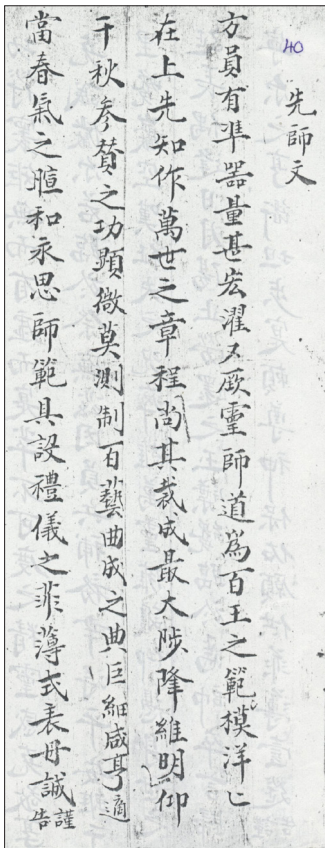 40
先師文
方員有準器量甚宏濯又厥𤫊師道爲百王之範模洋〻
在上先知作萬世之章程尚其裁成最大陟降維明仰
千秋參贊之功顯微莫測制百藝曲成之典巨細咸亨適
當春氣之暄和永思師範具設禮儀之菲薄式表毋誠謹告